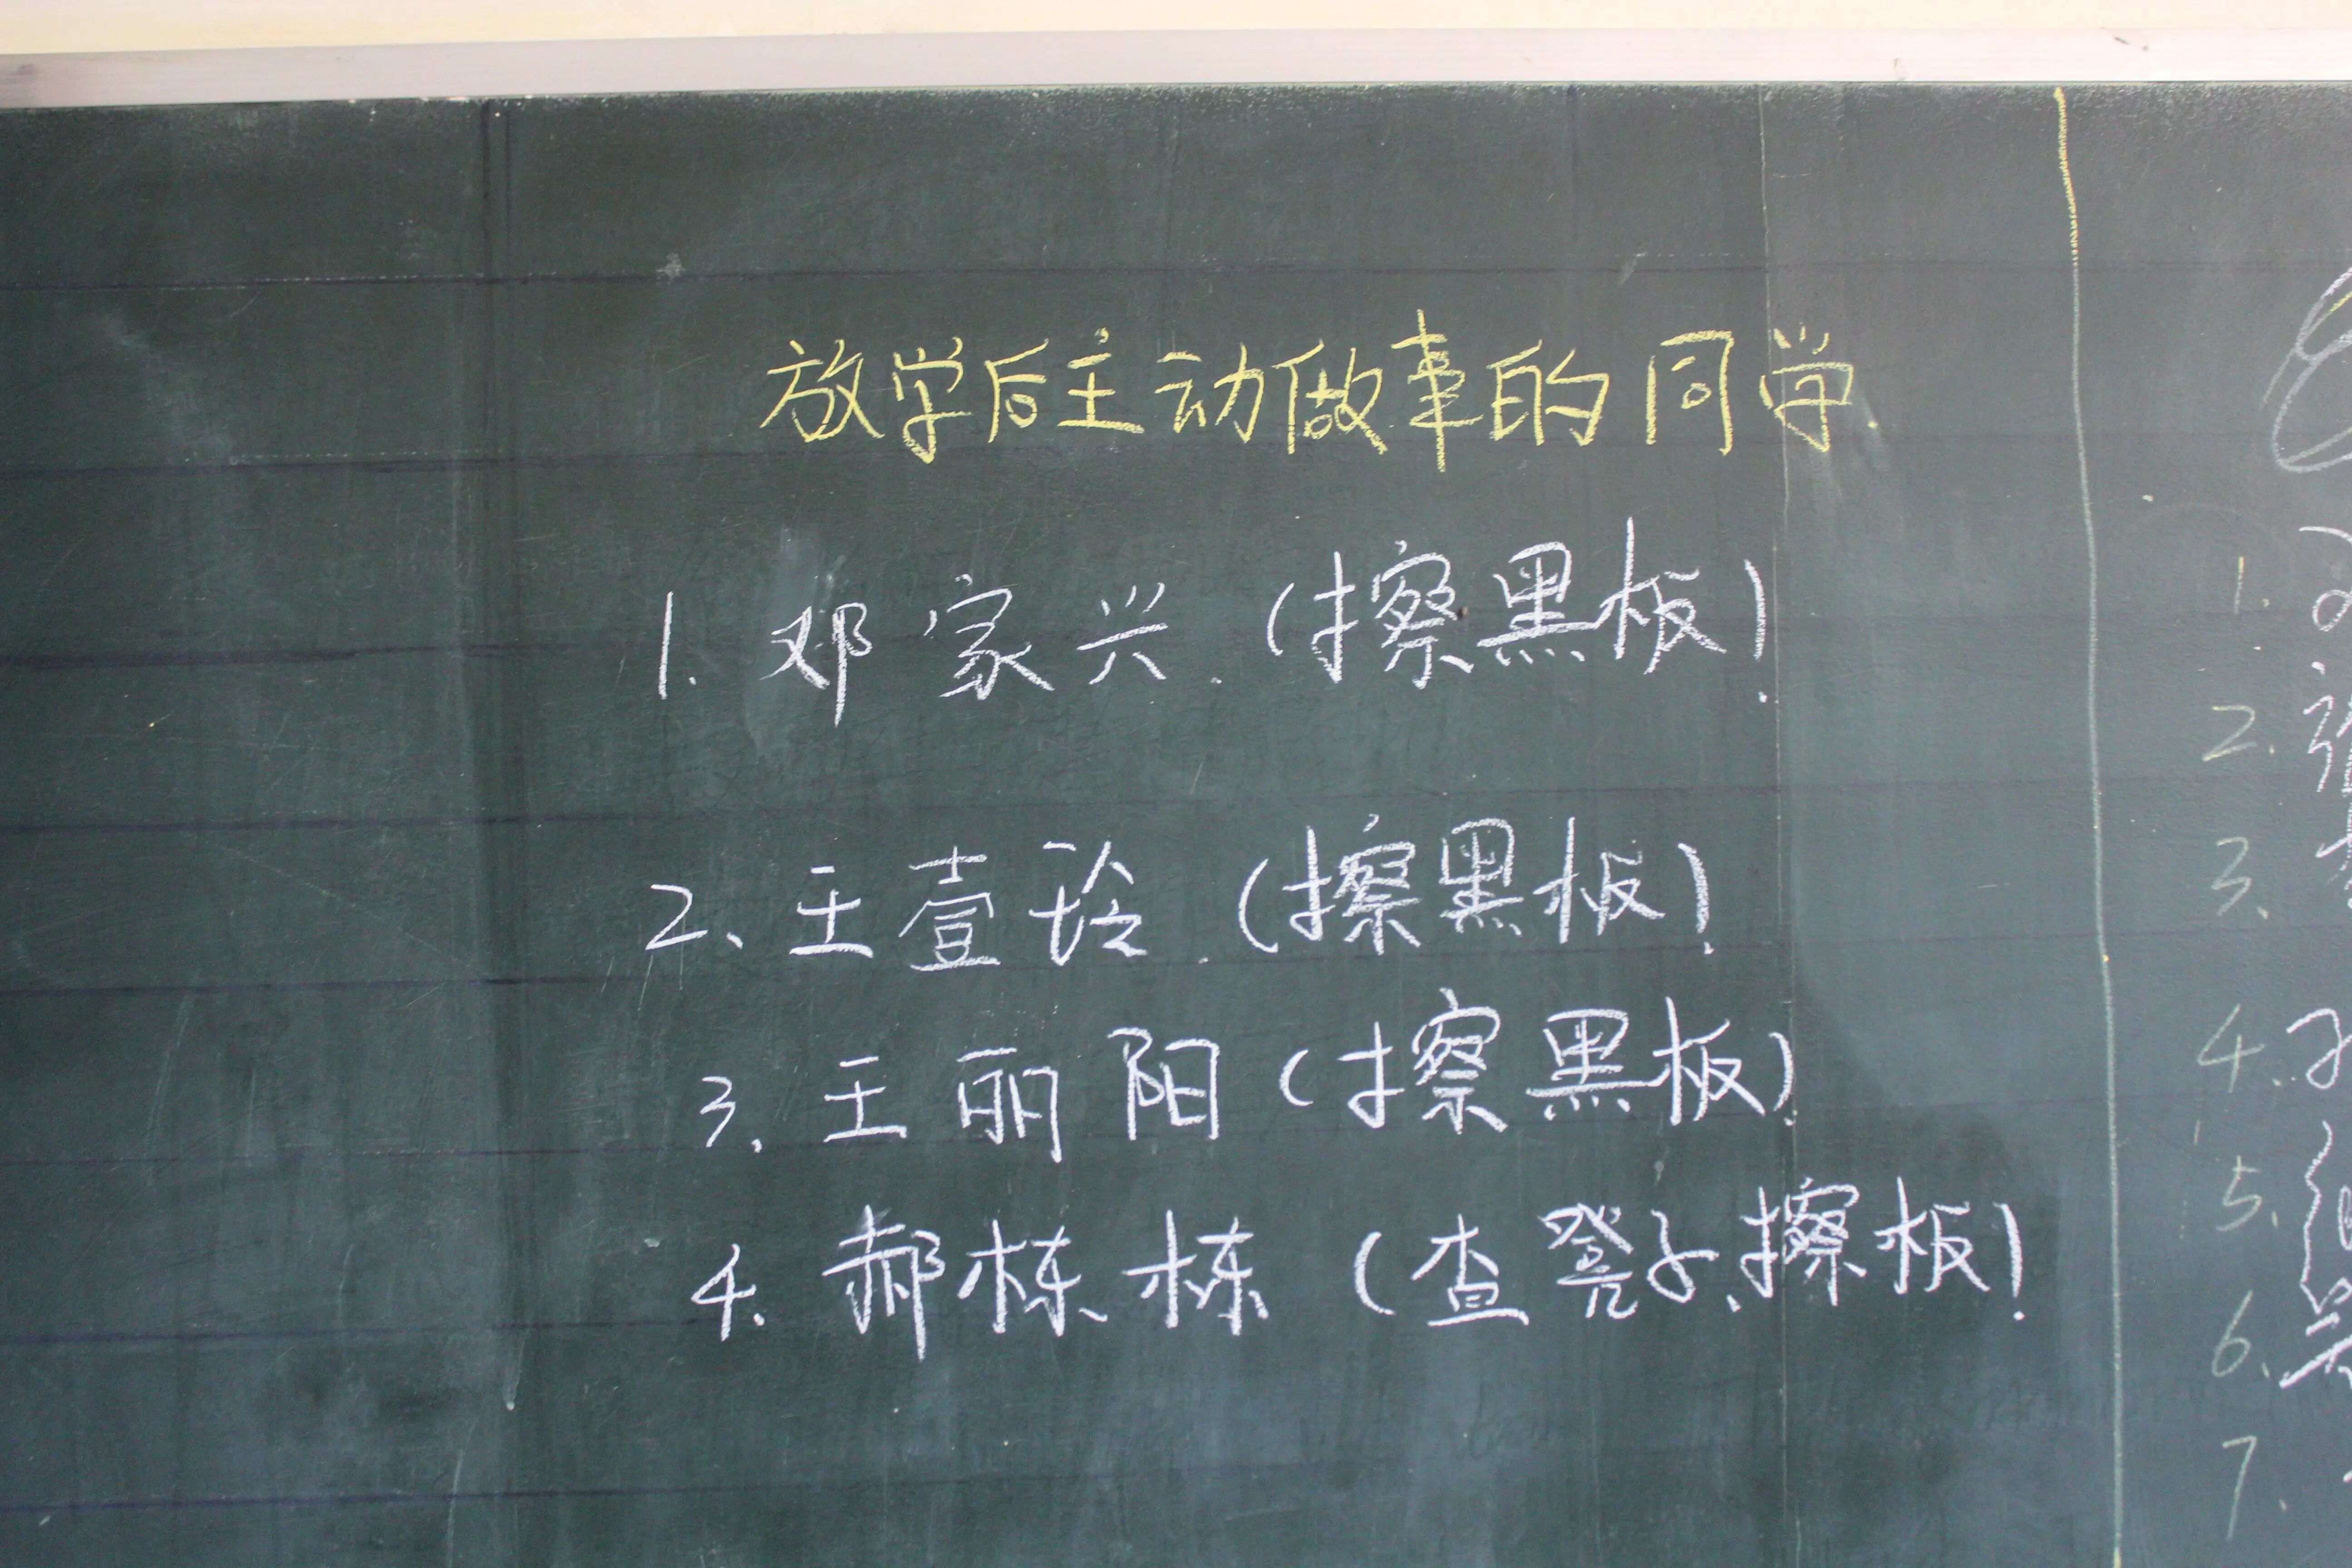 放学后主动做事的同学.
1. 邓家兴.(擦黑板).
2、王壹玲.(擦黑板).
3. 王丽阳(擦黑板).
4. 郝栋栋(查凳子、擦板).
1.
2.
3.
4.
5.
6.
7.